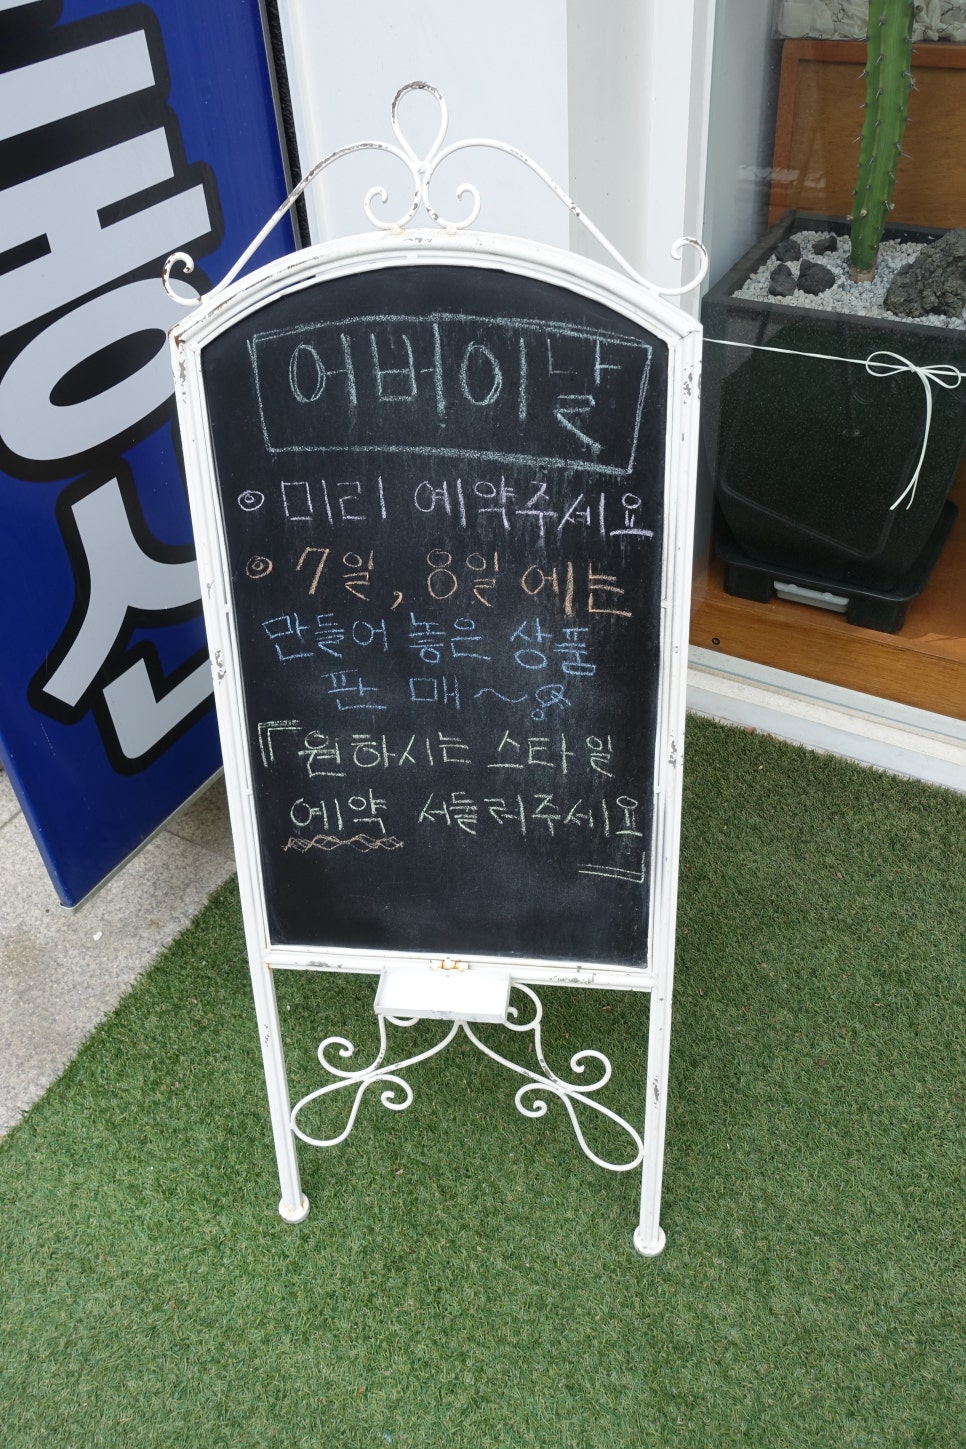 어버이날
◎ 미리 예약주세요
◎ 7일, 8일에는
만들어 놓은 상품
판매~
『원하시는 스타일
예약 서들러주세요
』